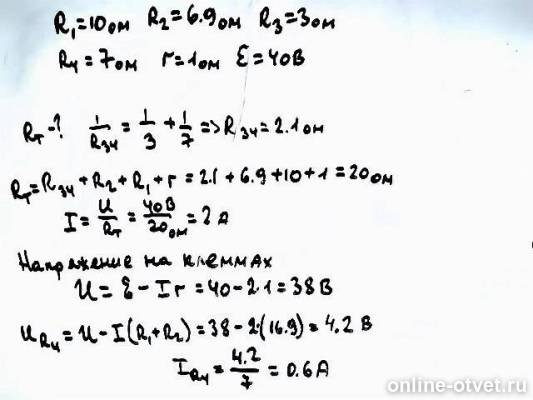 R₁=10ом R₂=6.9ом R₃=3ом
R₄=7ом r=1ом Ɛ=40В
Rт-? 1/R₃₄ = 1/3 + 1/7 => R₃₄=2.1ом
Rт=R₃₄+R₂+R₁+r=2.1+6.9+10+1=20ом
I=U/Rт=40В/20ом=2А
Напряжение на клеммах
U=Ɛ-Ir=40-2·1=38В
U_R₄=U-I(R₁+R₂)=38-2·(16.9)=4.2 В
I_R₄=4.2/7=0.6А
online-otvet.ru